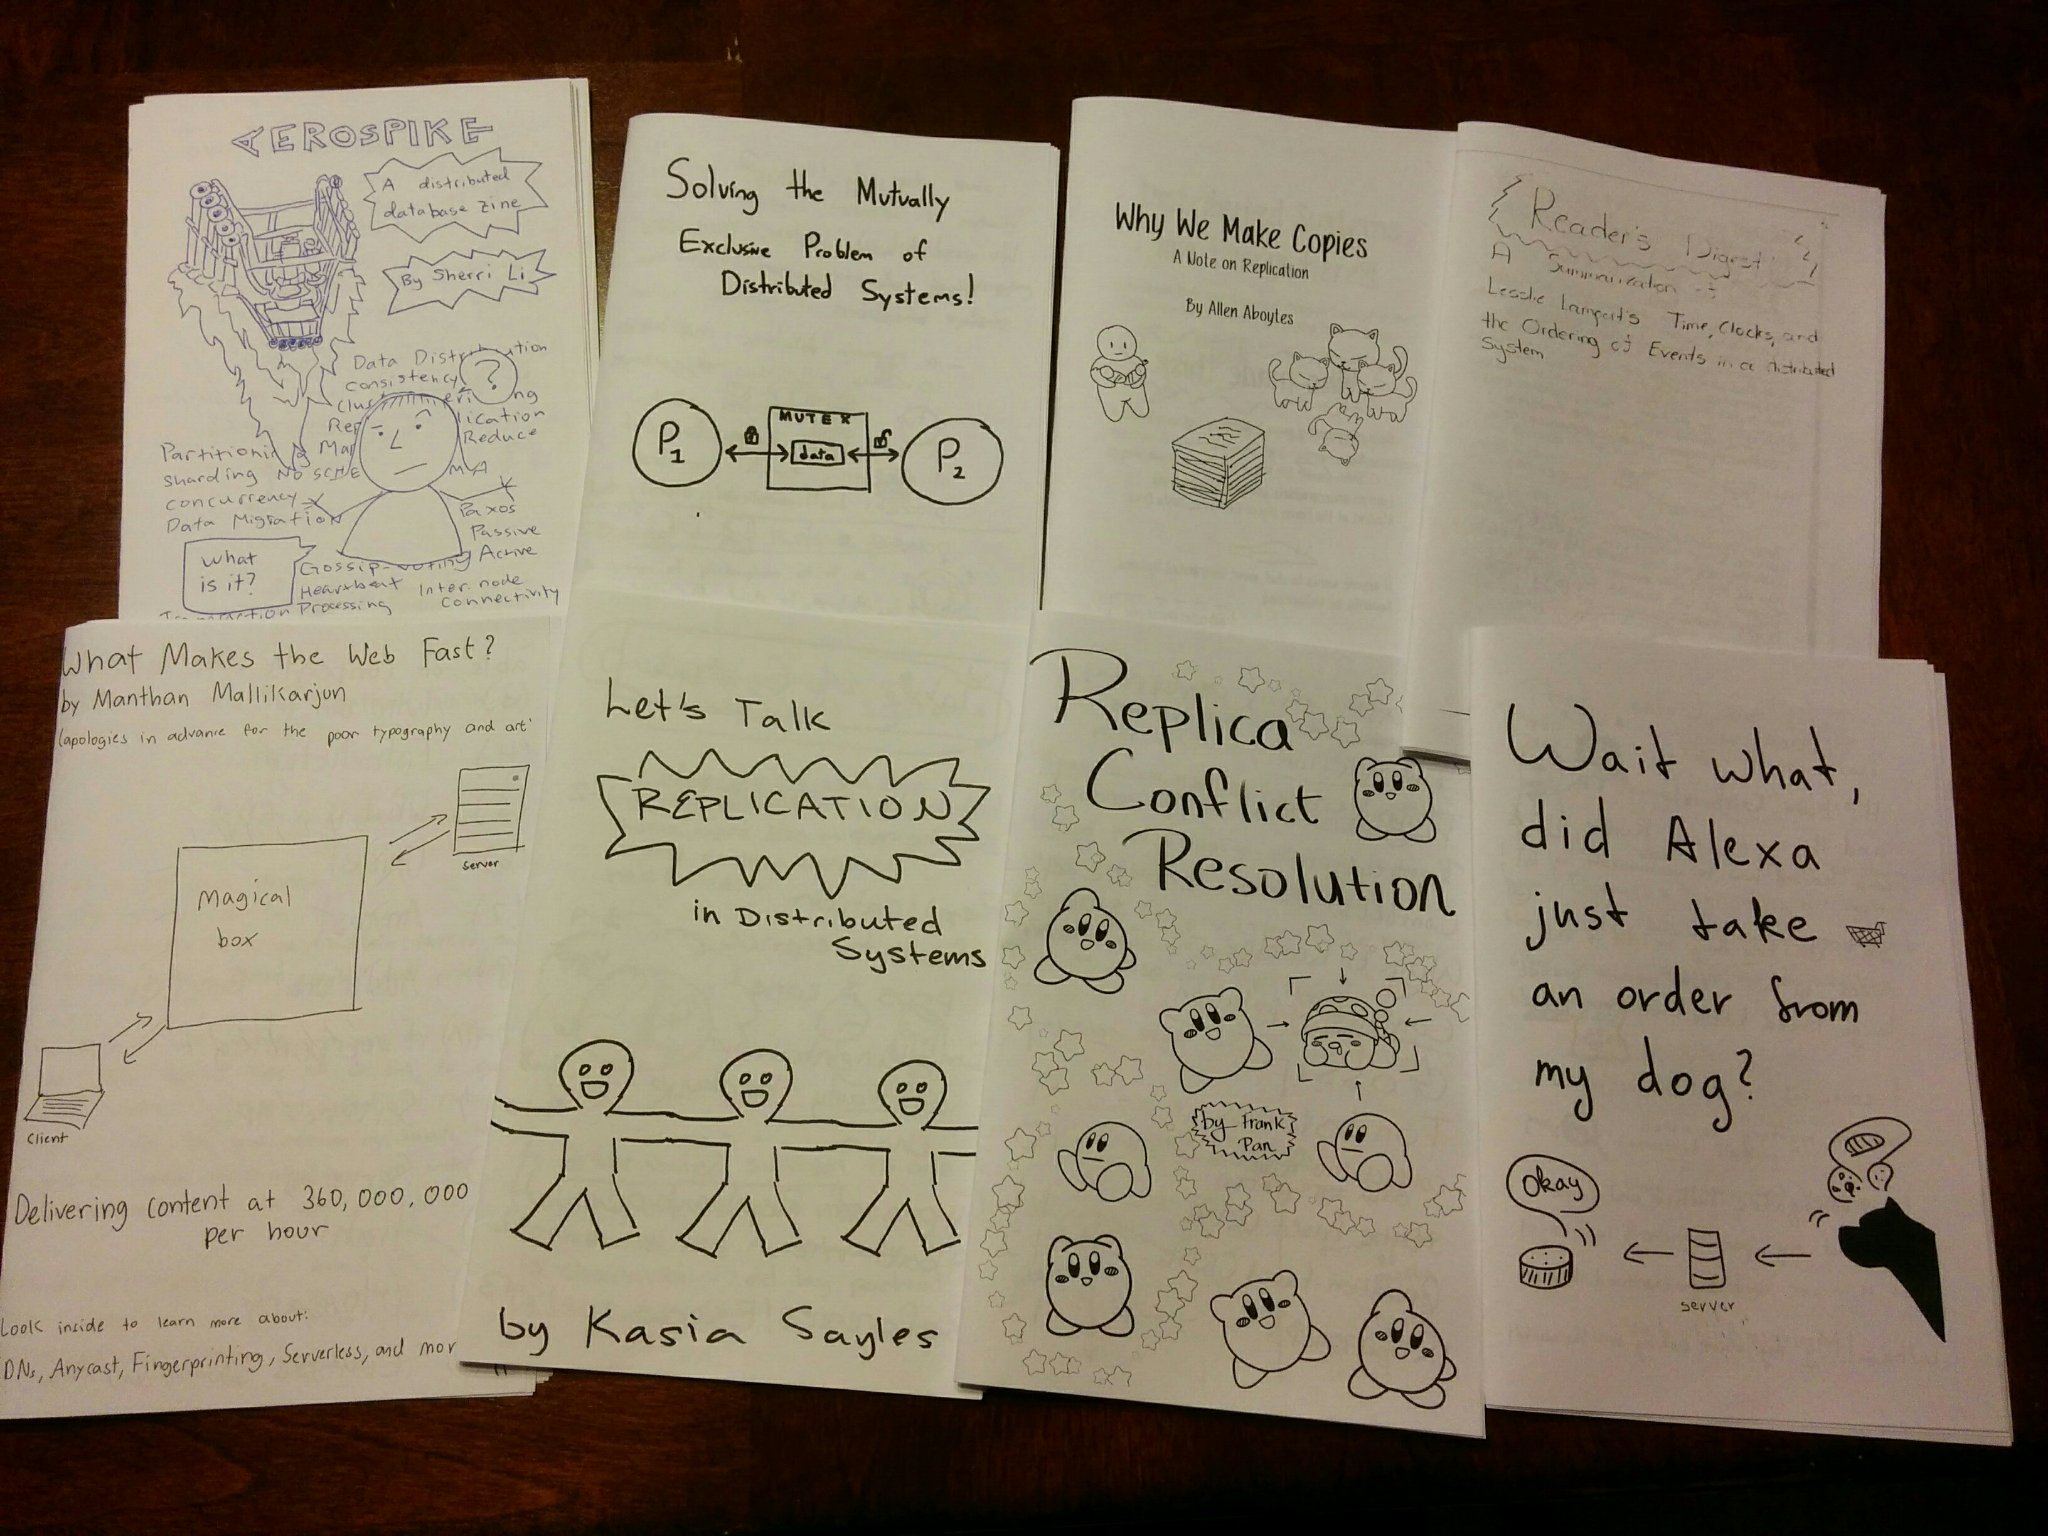 AEROSPIKE
A distributed
database zine
By Sherri Li
Data Distribution
consistency
?
Partitioning
sharding
concurrency
Data Migration
Reduce
Paxos
Passive
Active
what
is it?
Gossip-voting
Heartbeat Inter.node
Processing Connectivity
Solving the Mutually
Exclusive Problem of
Distributed Systems!
P1
MUTEX
data
P2
Why We Make Copies
A Note on Replication
By Allen Aboytes
Reader's Digest
A Summarization of
Leslie Lamport's Time, Clocks, and
the Ordering of Events in a distributed
System
What Makes the Web Fast?
by Manthan Mallikarjun
(apologies in advance for the poor typography and art
server
Magical
box
Client
Delivering content at 360,000,000
per hour
Look inside to learn more about:
DNs, Anycast, Fingerprinting, Serverless, and mor
Let's Talk
REPLICATION
in Distributed
Systems
by Kasia Sayles
Replica
Conflict
Resolution
by Frank
Pan
Wait what,
did Alexa
just take
an order from
my dog?
Okay
server